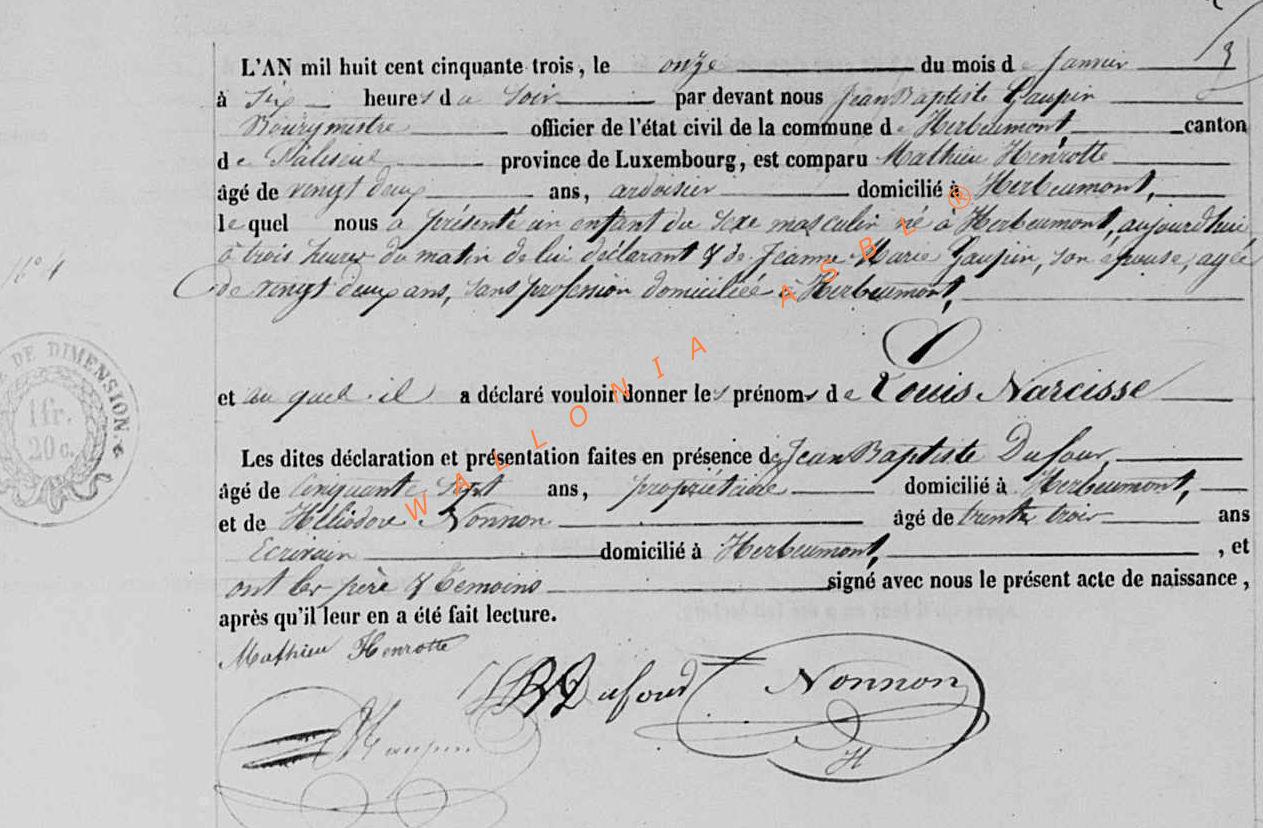 L'AN mil huit cent cinquante trois, le onze du mois de Janvier
à Six heures du soir par devant nous Jean Baptiste Gaupin
Bourgmestre officier de l'état civil de la commune de Herbeumont canton
de Paliseul province de Luxembourg, est comparu Mathieu Henrotte
âgé de vingt deux ans, ardoisier domicilié à Herbeumont,
le quel nous a présenté un enfant du sexe masculin né à Herbeumont, aujourd'hui
à trois heures du matin de lui déclarant & de Jeanne Marie Gaupin, son épouse, agée
N° 4
de vingt deux ans, sans profession domiciliée à Herbeumont,
et au quel il a déclaré vouloir donner les prénoms de Louis Narcisse
DE DIMENSION.
1 fr.
20 c.
Les dites déclaration et présentation faites en présence de Jean Baptiste Dufour,
âgé de Cinquante Sept ans, propriétaire domicilié à Herbeumont,
et de Héliodore Nonnon âgé de trente trois ans
Ecrivain domicilié à Herbeumont, , et
ont les père & témoins signé avec nous le présent acte de naissance,
après qu'il leur en a été fait lecture.
Mathieu Henrotte
JB Dufour Nonnon
Gaupin H
WALLONIA ASBL ®